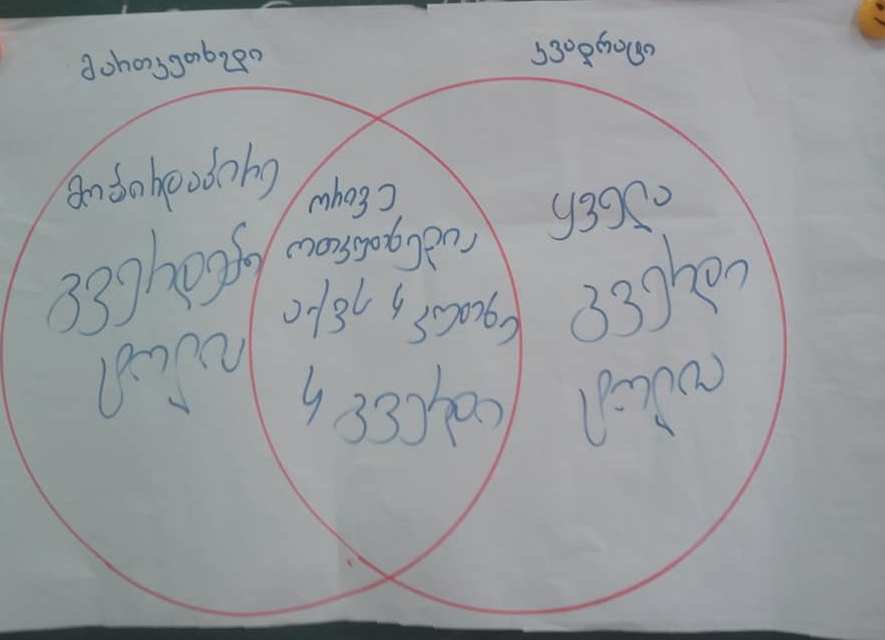 მართკუთხედი
კვადრატი
მოპირდაპირე
გვერდები
ტოლია
ორივე
ოთკუთხედია
აქვს 4 კუთხე
4 გვერდი
ყველა
გვერდი
ტოლია